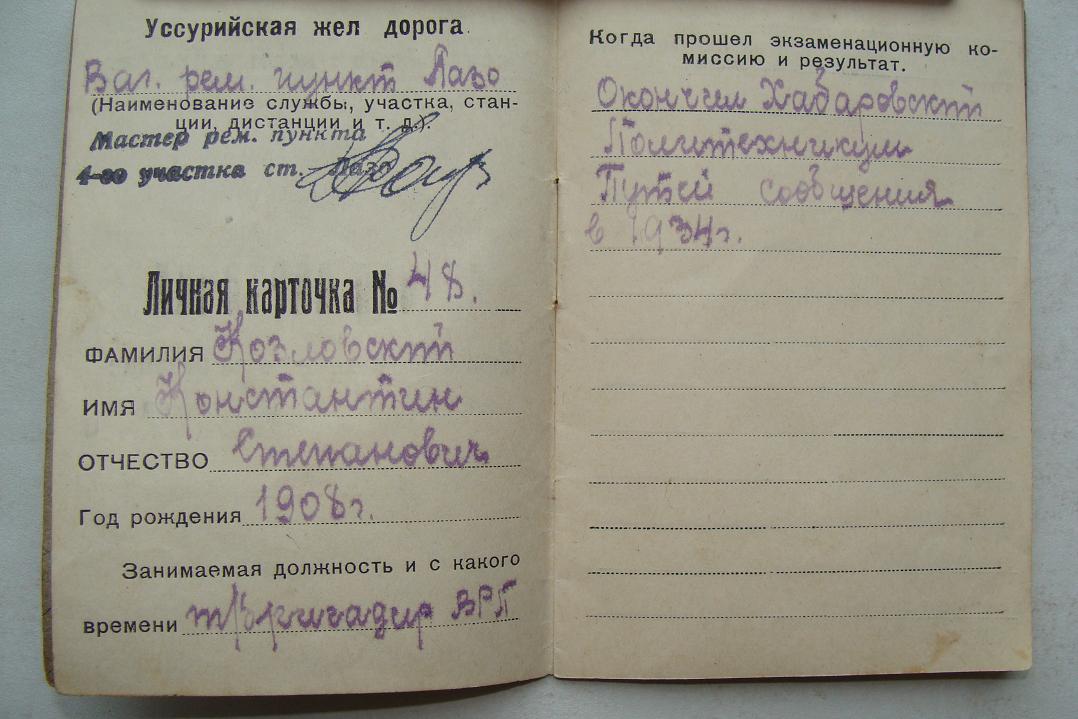 Уссурийская жел дорога
Ваг. рем. пункт Лазо
(Наименование службы, участка, стан-
ции, дистанции и т. д.).
Мастер рем. пункта
4-го участка ст. Лазо
Личная карточка № 48.
ФАМИЛИЯ Козловский
ИМЯ Константин
ОТЧЕСТВО Степанович
Год рождения 1908г.
Занимаемая должность и с какого
времени т/бригадир ВРП
Когда прошел экзаменационную ко-
миссию и результат.
Окончил Хабаровский
Политехникум
Путей сообщения
в 1934г.